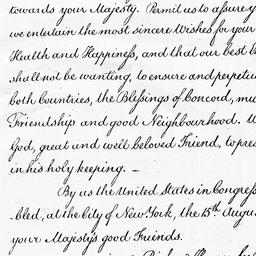 towards your Majesty. Permit us to assure y
we entertain the most sincere Wishes for your
Health and Happiness, and that our best E
shall not be wanting, to ensure and perpetua
both Countries, the Blessings of Concord, mu
Friendship and good Neighbourhood. W
God, great and well beloved Friend, to pres
in his holy keeping. —
By us the United States in Congress
-bled, at the City of New York, the 15th Augus
your Majestys good Friends.